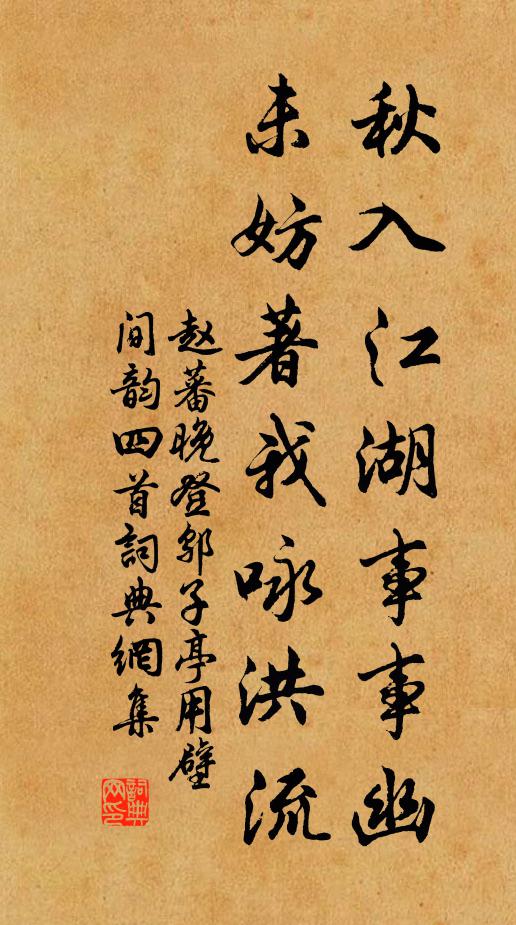 秋入江湖事事幽
未妨著我咏洪流
赵蕃晚登邬子亭用壁
间韵四首词典網集
詞典網印